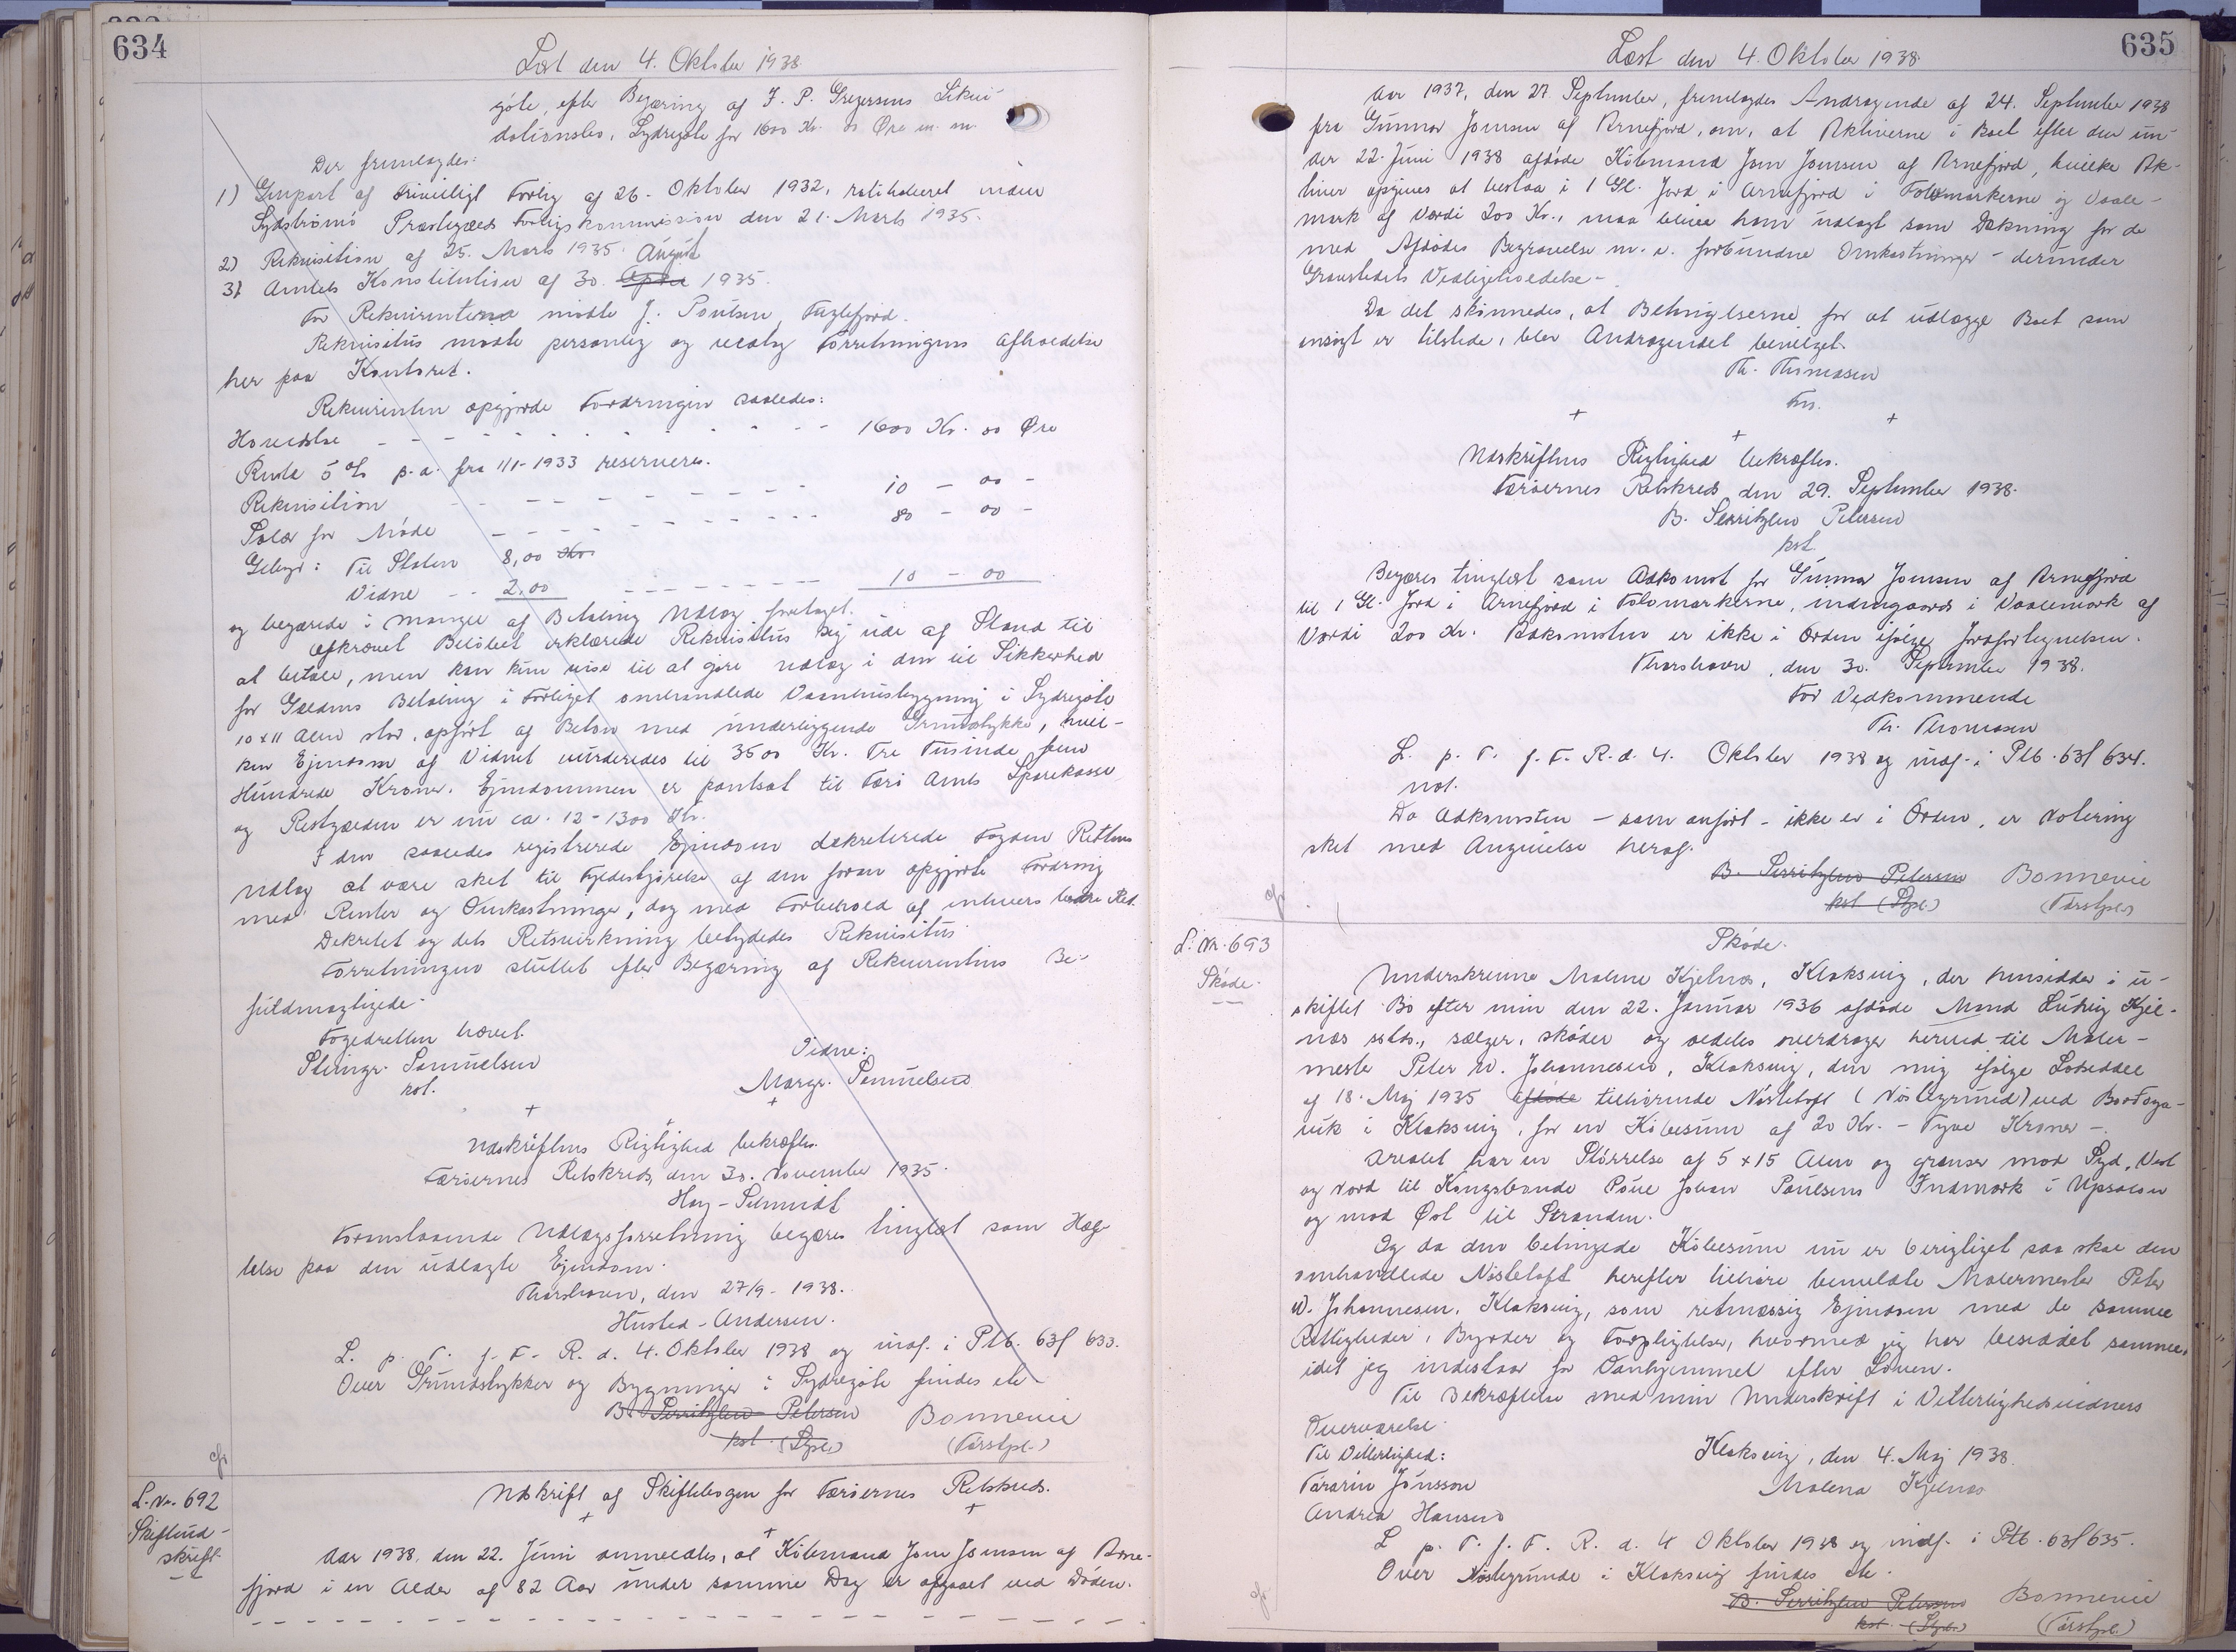 634
Læst den 4. Oktober 1938.
göte, efter Begæring af J. P. Gregersens Likvi-
dationsbo, Sydregøte for 1600 Kr. 00 Øre m. m.
Der fremlagdes:
1) Genpart af Frivilligt Forlig af 26. Oktober 1932, ratihaberet inden
Sydströmö Præstegælds Forligskommission den 21. Marts 1935.
2) Rekvisition af 25. Marts 1935. August
3) Amtets Konstitution af 30. April 1935.
For Rekvirenterne mödte J. Poulsen, Fuglefjord.
Rekvisitus mödte personlig og vedtog Forretningens Afholdelse
her paa Kontoret.
Rekvirenten opgjorde Fordringen saaledes:
Hovedstol - - - - - - - - 1600 Kr. 00 Øre
Rente 5 % p. a. fra 1/1-1933 reserveres.
Rekvisition - - - - - - - 10 - 00 -
Salær for Möde - - - - - - - 80 - 00 -
Gebyr: Til Staten 8,00 Kr.
Vidne - - 2,00 - - - - - - 10 - 00
og begærede i Mangel af Betaling Udlæg foretaget.
Afkrævet Belöbet erklærede Rekvisitus sig ude af Stand til
at betale, men kan kun vise til at göre Udlæg i den til Sikkerhed
for Gældens Betaling i Forliget omhandlede Vaaningsbygning i Sydregöte
10 x 11 Alen stor, opfört af Beton med underliggende Grundstykke, hvil-
ken Ejendom af Vidnet vurderedes til 3500 Kr. Tre Tusinde fem
Hundrede Kroner. Ejendommen er pantsat til Færö Amts Sparekasse
og Restgælden er nu ca. 12-1300 Kr.
I den saaledes registrerede Ejendom dekreterede Fogden Rettens
Udlæg at være sket til Fyldestgörelse af den foran opgjorte Fordring
med Renter og Omkostninger, dog med Forbehold af enhvers bedre Ret.
Dekretet og dets Retsvirkning betydedes Rekvisitus.
Forretningen sluttet efter Begæring af Rekvirentens Be-
fuldmægtigede.
Fogedretten hævet.
Steingr. Samuelsen
kst.
Vidne:
Margr. Samuelsen
+ + +
Udskriftens Rigtighed bekræftes.
Færöernes Retskreds, den 30. November 1935.
Høy-Schmidt
Foranstaaende Udlægsforretning begæres tinglæst som Hæf-
telse paa den udlagte Ejendom.
Thorshavn, den 27/9- 1938.
Husted-Andersen.
L. p. T. f. F. R. d. 4. Oktober 1938 og indf. i Ptb. 63f 633.
Over Grundstykker og Bygninger i Sydregöte findes ete
B. Serritzlew Petersen Bonnevie
kst. (Stpl.) (Förstpl.)
cfr
L. Nr. 692
Skifteud-
skrift.
Udskrift af Skiftebogen for Færöernes Retskreds.
+ + +
Aar 1938, den 22. Juni anmeldtes, at Köbmand Jom Jomsen af Arne-
fjord i en Alder af 82 Aar under samme Dag er afgaaet ved Döden.
635
Læst den 4. Oktober 1938.
Aar 1937, den 27. September, fremlagdes Andragende af 24. September 1938
fra Gunnar Jomsen af Arnefjord, om, at Aktiverne i Boet efter den un-
der 22. Juni 1938 afdöde Köbmand Jom Jomsen af Arnefjord, hvilke Ak-
tiver opgives at bestaa i 1 Gl. Jord i Arnefjord i Fölomarkerne og Vaale-
mark af Værdi 200 Kr., maa blive ham udlagt som Dækning for de
med Afdödes Begravelse m. v. forbundne Omkostninger - derunder
Gravstedets Vedligeholdelse -
Da det skönnedes, at Betingelserne for at udlægge Boet som
ensigt er tilstede, blev Andragendet bevilget.
Th. Thomassen
Fm.
+ + +
Udskriftens Rigtighed bekræftes.
Færöernes Retskreds, den 29. September 1938.
B. Serritzlew Petersen
kst.
Begæres tinglæst som Adkomst for Gunnar Jomsen af Arnefjord
til 1 Gl. Jord i Arnefjord i Fölomarkerne, indengaards i Vaalemark af
Værdi 200 Kr. Adkomsten er ikke i Orden ifölge Jordfortegnelsen.
Thorshavn, den 30. September 1938.
For Vedkommende
Th. Thomassen
L. p. T. f. F. R. d. 4. Oktober 1938 og indf. i Ptb. 63f 634.
not.
Da Adkomsten - som anfört - ikke er i Orden, er Notering
sket med Angivelse heraf.
B. Serritzlew Petersen Bonnevie
kst (Stpl.) (Förstpl.)
cfr
L. Nr. 693
Sköde.
Sköde.
Underskrevne Malene Kjelnæs, Klaksvig, der hensidder i u-
skiftet Bo efter min den 22. Januar 1936 afdöde Mand Ludvig Kjel-
næs sstds., sælger, sköder og aldeles overdrager herved til Maler-
mester Peter W. Johannesen, Klaksvig, den mig ifölge Lodseddel
af 18. Maj 1935 afdöde tilhörende Nöstetoft (Nöstegrund) ved Bordoya-
vik i Klaksvig, for en Köbesum af 20 Kr. - Tyve Kroner -.
Arealet har en Störrelse af 5 x 15 Alen og grænser mod Syd, Vest
og Nord til Kongsbonde Poul Johan Poulsens Indmark i Upsalen
og mod Øst til Stranden.
Og da den betingede Köbesum nu er berigtiget saa skal den
omhandlede Nöstetoft herefter tilhöre bemeldte Malermester Peter
W. Johannesen, Klaksvig, som retmæssig Ejendom med de samme
Rettigheder, Byrder og Forpligtelser, hvormed jeg har besiddet samme,
idet jeg indestaar for Vanhjemmel efter Loven.
Til Bekræftelse med min Underskrift i Vitterlighedsvidners
Overværelse.
Til Vitterlighed:
Tórarin Jónsson
Andrea Hansen
Klaksvig, den 4. Maj 1938.
Malena Kjelnæs
L. p. T. f. F. R. d. 4 Oktober 1938 og indf. i Ptb. 63f 635.
Over Nöstegrunde i Klaksvig findes ete.
B. Serritzlew Petersen Bonnevie
kst (Stpl.) (Förstpl.)
cfr